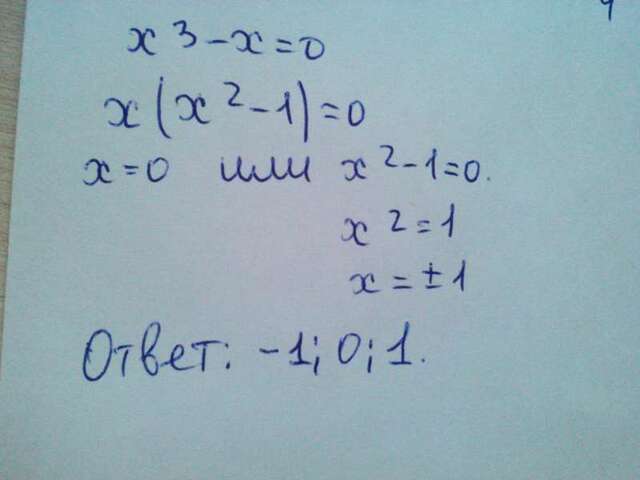 x³-x=0
x(x²-1)=0
x=0 или x²-1=0.
x²=1
x=±1
Ответ: -1; 0; 1.